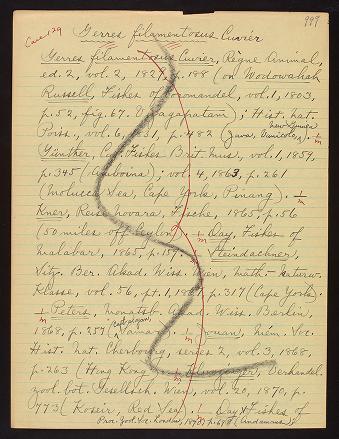 999
Case 129
Gerres filamentosus Cuvier
Gerres filamentosus Cuvier, Règne Animal,
ed. 2, vol. 2, 1829, p. 188 (on Wodowahah
Russell, Fishes of Coromandel, vol. 1, 1803,
p. 52, fig. 67. Vizagapatam); Hist. Nat.
New Guinea
Poiss., vol. 6, 1831, p. 482 (Java, Vanicolo). 1/m
Günther, Cat. Fishes Brit. Mus., vol. 1, 1859,
p. 345 (Amboina); vol. 4, 1863, p. 261
(Molucca Sea, Cape York, Pinang). 1/m
Kner, Reise Novara, Fische, 1865, p. 56
(50 miles off Ceylon). 1/m Day, Fishes of
Malabar, 1865, p. 159. 1/m Steindachner,
Sitz. Ber. Akad. Wiss. Wien, math.-naturw.
Klasse, vol. 56, pt. 1, 1867, p. 317 (Cape York).
1/m Peters, Monatsb. Akad. Wiss. Berlin,
1868, p. 257 (Samar). 1/m Jouan, Mém. Soc.
Hist. Nat. Cherbourg, series 2, vol. 3, 1868,
p. 263 (Hong Kong). 1/m Klunzinger, Verhandl.
zool. bot. Gesellsch. Wien, vol. 20, 1870, p.
773 (Koseir, Red Sea). 1/m Day, Fishes of
Proc. Zool. Soc. London, 1870, p. 678 (Andamans);